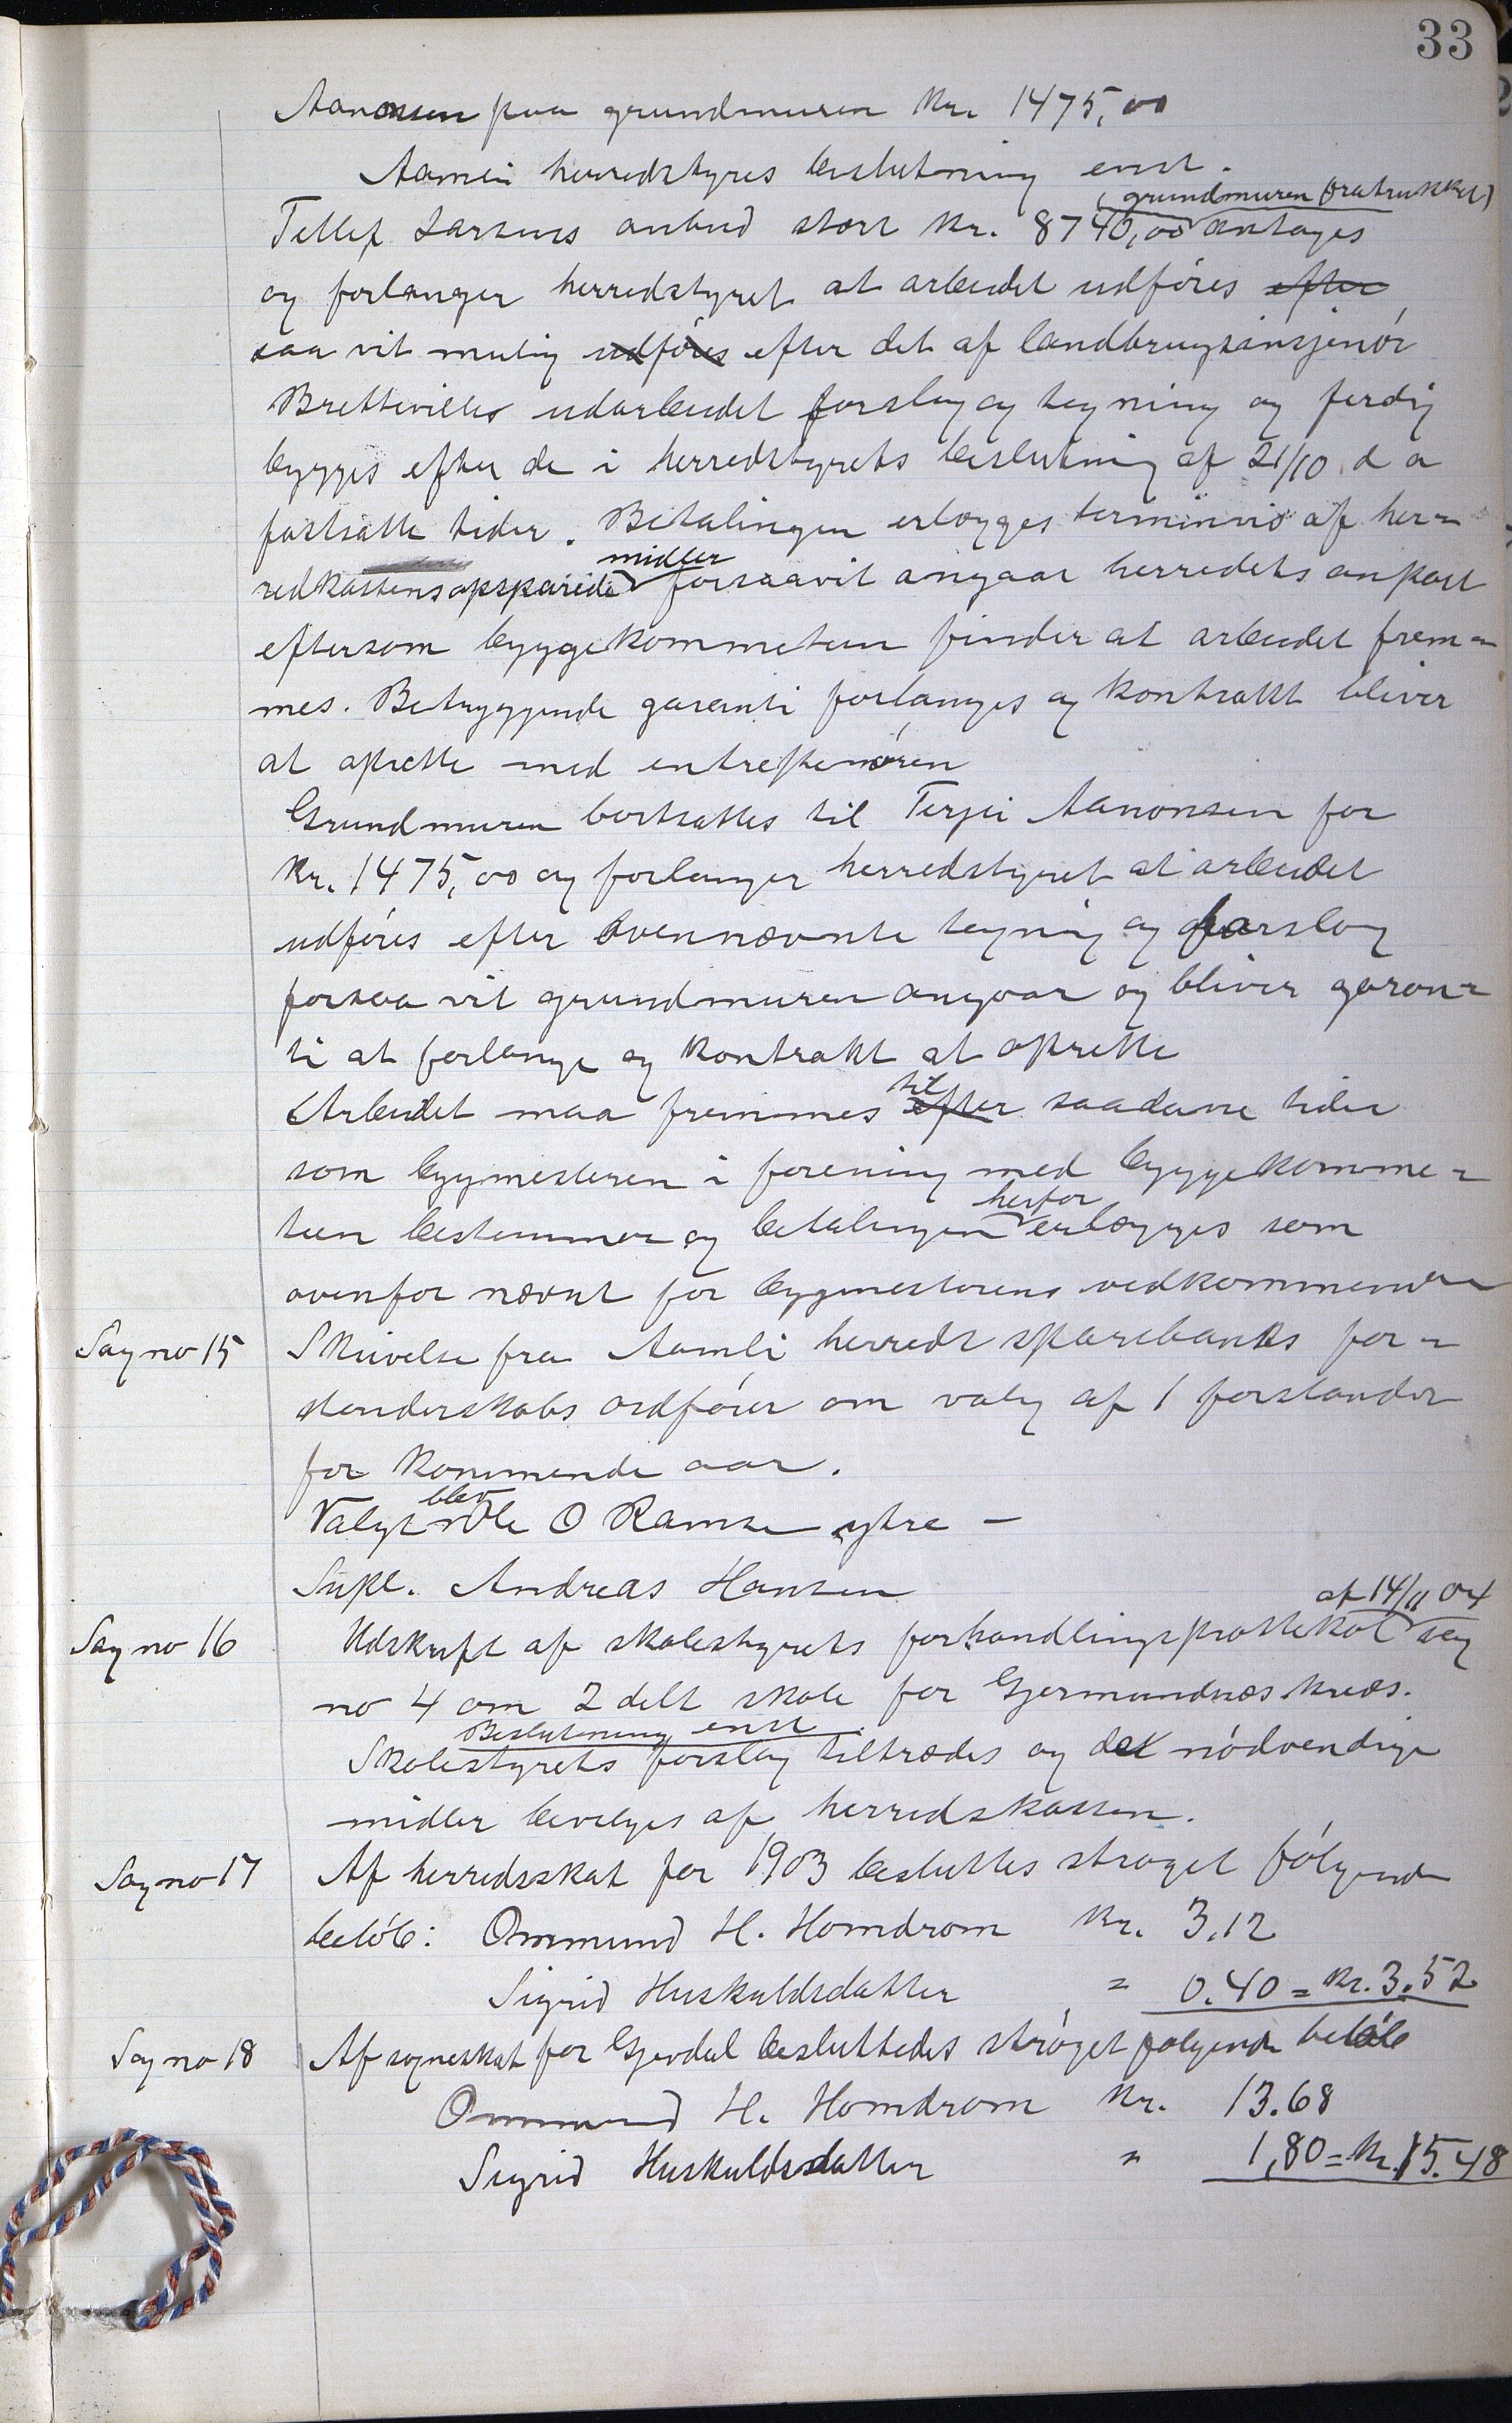 33
Aanonsen paa grundmuren Kr. 1475,00
Aamli herredstyres beslutning enst.
(grundmuren fratrukket)
Tellef Larsens anbud stort Kr. 8740,00 antages
og forlanger herredstyret at arbeidet udføres efter
saa vit mulig udføres efter det af landbrugsinsjenør
Brettevilles udarbeidet forslag og tegning og ferdig
bygges efter de i herredstyrets beslutning af 21/10 d a
fastsatte tider. Betalingen erlægges terminvis af her-
midler
redkassens opsparede forsaavit angaar herredets anpart
eftersom byggekommeteen finder at arbeidet frem-
mes. Betryggende garanti forlanges og kontrakt bliver
at oprette med entreprenøren
Grundmuren bortsattes til Terjei Aanonsen for
Kr. 1475,00 og forlanger herredstyret at arbeidet
udføres efter ovennævnte tegning og forslag
forsaa vit grundmuren angaar og bliver garan-
ti at forlange og kontrakt at oprette
til
Arbeidet maa fremmes efter saadanne tider
som bygmesteren i forening med byggekomme-
herfor
teen bestemmer og betalingen erlægges som
ovenfor nævnt for bygmesterens vedkommende
Sag no 15 Skrivelse fra Aamli herreds sparebanks for-
standerskabs ordfører om valg af 1 forstander
for kommende aar.
blev
Valgt Ole O Ramse ytre -
Supl. Andreas Hansen
af 14/11 04
Sag no 16 Udskrift af skolestyrets forhandlingsprottekol sag
no 4 om 2 delt skole for Gjermundnæs kreds.
Beslutning enst.
Skolestyrets forslag tiltrædes og det nødvendige
midler bevelges af herredskassen.
Sag no 17 Af herredsskat for 1903 besluttes strøget følgende
beløb: Ommund H. Homdrom Kr. 3.12
Sigrid Huskuldsdatter " 0.40 = Kr. 3.52
Sag no 18 Af sogneskat for Gjevdal besluttedes strøget følgende beløb
Ommund H. Homdrom Kr. 13.68
Sigrid Huskuldsdatter " 1,80 = Kr. 15.48